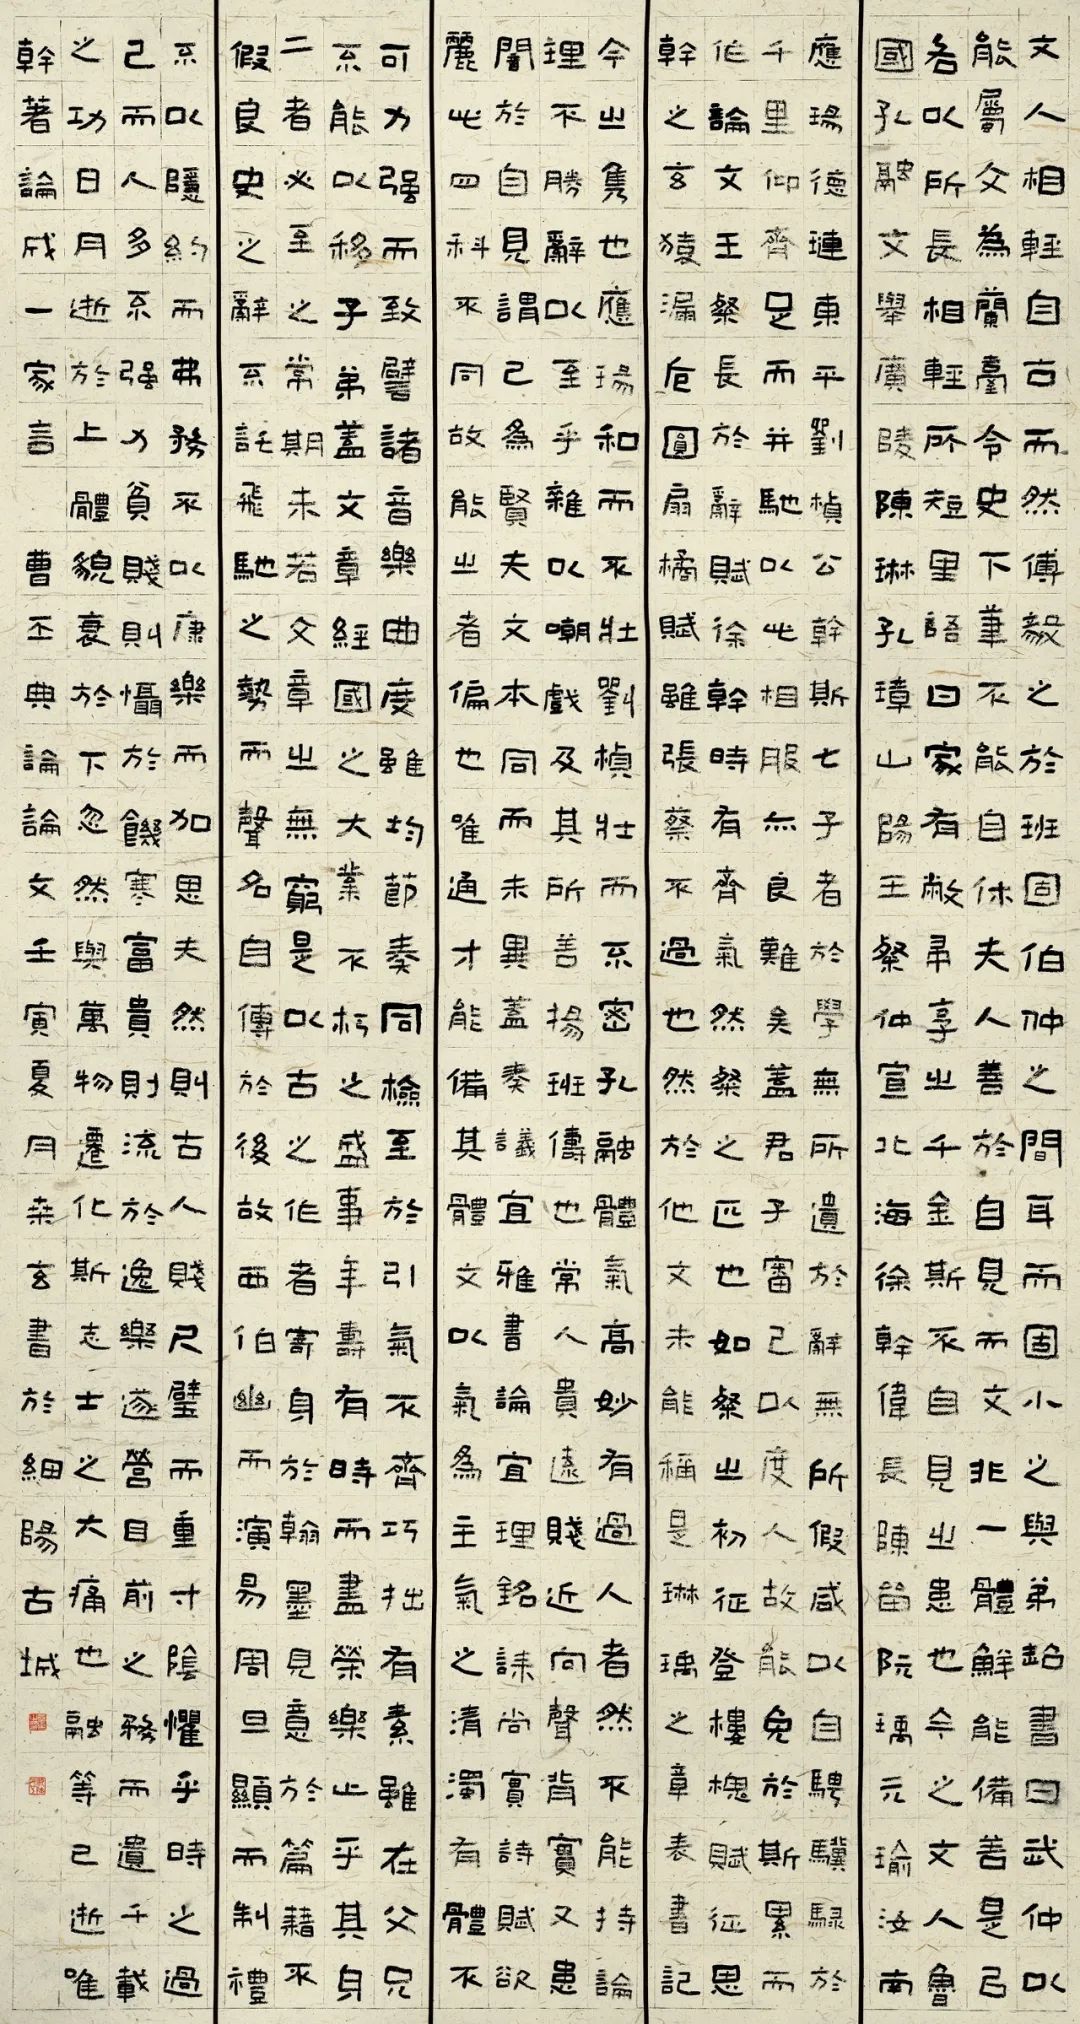 文人相輕自古而然傅毅之於班固伯仲之間耳而固小之與弟超書曰武仲以
能屬文為蘭臺令史下筆不能自休夫人善於自見而文非一體鮮能備善是以
各以所長相輕所短里語曰家有敝帚享之千金斯不自見之患也今之文人魯
國孔融文舉廣陵陳琳孔璋山陽王粲仲宣北海徐幹偉長陳留阮瑀元瑜汝南
應瑒德璉東平劉楨公幹斯七子者於學無所遺於辭無所假咸以自騁驥騄於
千里仰齊足而并馳以此相服亦良難矣蓋君子審己以度人故能免於斯累而
作論文王粲長於辭賦徐幹時有齊氣然粲之匹也如粲之初征登樓槐賦征思
幹之玄猿漏卮圓扇橘賦雖張蔡不過也然於他文未能稱是琳瑀之章表書記
今之雋也應瑒和而不壯劉楨壯而不密孔融體氣高妙有過人者然不能持論
理不勝辭以至乎雜以嘲戲及其所善揚班儔也常人貴遠賤近向聲背實又患
闇於自見謂己為賢夫文本同而末異蓋奏議宜雅書論宜理銘誄尚實詩賦欲
麗此四科不同故能之者偏也唯通才能備其體文以氣為主氣之清濁有體不
可力强而致譬諸音樂曲度雖均節奏同檢至於引氣不齊巧拙有素雖在父兄
不能以移子弟蓋文章經國之大業不朽之盛事年壽有時而盡榮樂止乎其身
二者必至之常期未若文章之無窮是以古之作者寄身於翰墨見意於篇藉不
假良史之辭不託飛馳之勢而聲名自傳於後故西伯幽而演易周旦顯而制禮
不以隱約而弗務不以康樂而加思夫然則古人賤尺璧而重寸陰懼乎時之過
已而人多不强力貧賤則懾於饑寒富貴則流於逸樂遂營目前之務而遺千載
之功日月逝於上體貌衰於下忽然與萬物遷化斯志士之大痛也融等已逝唯
幹著論成一家言 曹丕典論論文壬寅夏月玄書於細陽古城